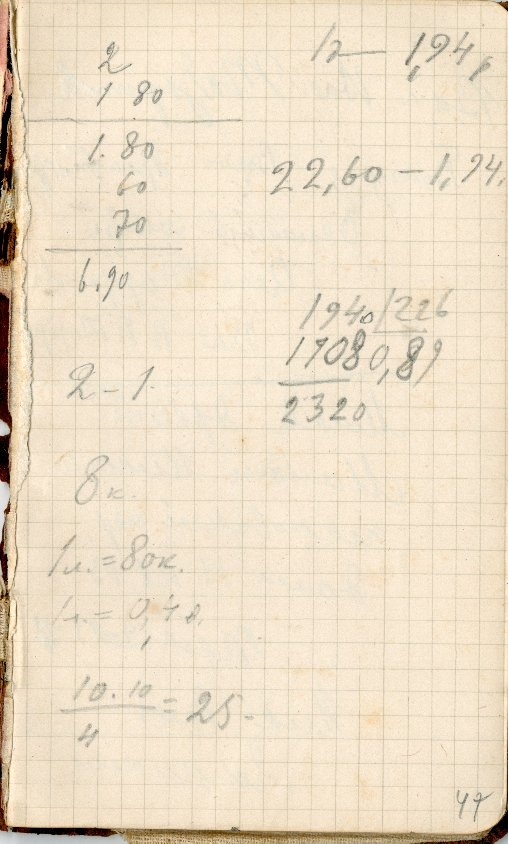 2
1 80
1.80
60
70
6.90
2 - 1.
8 к.
1 л. = 80 к.
1 л. = 0,4 в.
10 . 10
4
= 25 -
1 г — 1,94 р
22,60 — 1,94.
1940 | 226
1708 0,89
2320
47